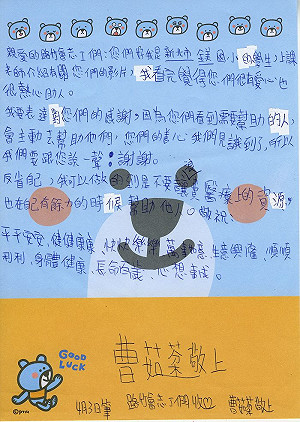 親愛的路竹會志工們:您們好我是新北市 國小的學生,上課
老師介紹有關您們的影片,我看完覺得您們很有愛心也
很熱心助人。
我要表達對您們的感謝,因為您們看到需要幫助的人,
會主動去幫助他們,您們的善心我們見識到了,所以
我們要跟您說一聲:謝謝。
反省自己,我可以做的到是不要浪費醫療上的資源,
也在自己有餘力的時候幫助他人。敬祝:
平平安安、健健康康、快快樂樂、萬事如意、生意興隆、順順
利利、身體健康、長命百歲、心想事成。
曹茹棻敬上
GOOD
LUCK
4月3日筆 路竹會志工們收♡ 曹茹棻敬上